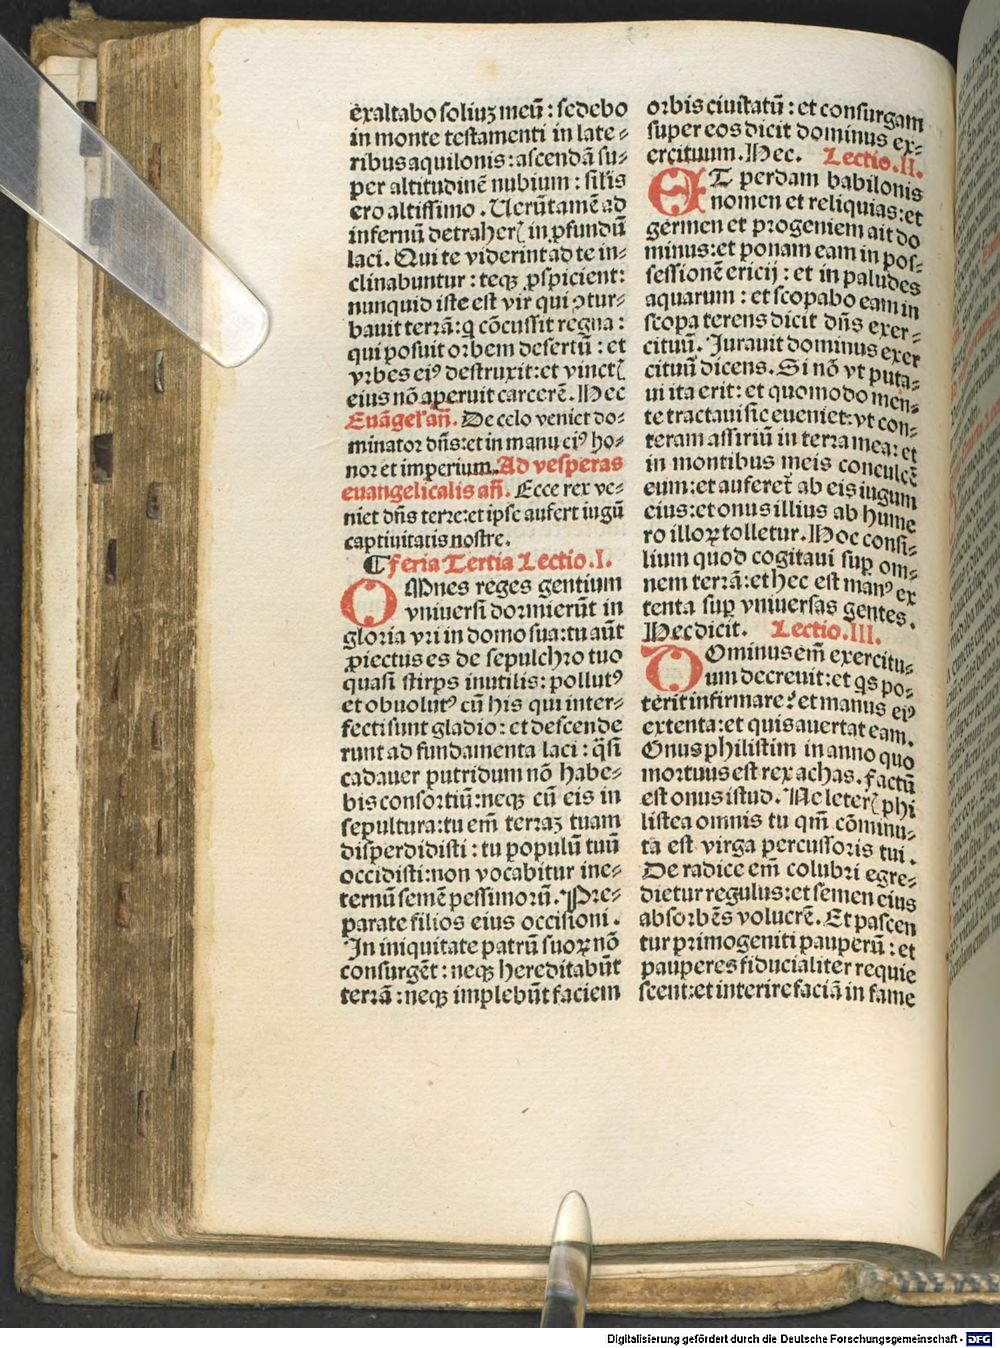 exaltabo soliuꝫ meū : sedebo
in monte testamenti in late⸗
ribus aquilonis : ascendā su⸗
per altitudinē nubium : silis
ero altissimo . Uerūtamē ad
infernū detraherꝭ in ꝓfundū
laci . Qui te viderint ad te in⸗
clinabuntur : teqꝫ ꝓspicient :
nunquid iste est vir qui ꝯtur⸗
bauit terrā : q̄ cōcussit regna :
qui posuit orbem desertū : et
vrbes eiꝰ destruxit : et vinctꝭ
eius nō aperuit carcerē . Hec
Euāgel' an̄ . De celo veniet do⸗
minator dn̄s : et in manu eiꝰ ho⸗
nor et imperium . Ad vesperas
euangelicalis an̄ . Ecce rex ve⸗
niet dn̄s terre : et ipse aufert iugū
captiuitatis nostre .
¶ feria Tertia Lectio . I .
OMnes reges gentium
vniuersi dormierūt in
gloria vri in domo sua : tu aūt
ꝓiectus es de sepulchro tuo
quasi stirps inutilis : pollutꝰ
et obuolutꝰ cū his qui inter⸗
fecti sunt gladio : et descende
runt ad fundamenta laci : q̄si
cadauer putridum nō habe⸗
bis consortiū : neqꝫ cū eis in
sepultura : tu em̄ terraꝫ tuam
disperdidisti : tu populū tuū
occidisti : non vocabitur ine⸗
ternū semē pessimorū . Pre⸗
parate filios eius occisioni .
In iniquitate patrū suoꝝ nō
consurgēt : neqꝫ hereditabūt
terrā : neqꝫ implebūt faciem
orbis ciuitatū : et consurgam
super eos dicit dominus ex⸗
ercituum . Hec . Lectio . II .
ET perdam babilonis
nomen et reliquias : et
germen et progeniem ait do
minus : et ponam eam in pos⸗
sessionē ericij : et in paludes
aquarum : et scopabo eam in
scopa terens dicit dn̄s exer⸗
cituū . Iurauit dominus exer
cituū dicens . Si nō vt puta⸗
ui ita erit : et quomodo men⸗
te tractaui sic eueniet : vt con⸗
teram assiriū in terra mea : et
in montibus meis conculcē
eum : et auferet̄ ab eis iugum
eius : et onus illius ab hume
ro illoꝝ tolletur . Hoc consi⸗
lium quod cogitaui suꝑ om⸗
nem terrā : et hec est manꝰ ex
tenta suꝑ vniuersas gentes .
Hec dicit . Lectio . III .
DOminus em̄ exercitu⸗
um decreuit : et qs po⸗
terit infirmare ? et manus eiꝰ
extenta : et quis auertat eam .
Onus philistim in anno quo
mortuus est rex achas . factū
est onus istud . Ne leterꝭ phi
listea omnis tu qm̄ cōminu⸗
ta est virga percussoris tui .
De radice em̄ colubri egre⸗
dietur regulus : et semen eius
absorbēs volucrē . Et pascen
tur primogeniti pauperū : et
pauperes fiducialiter requie
scent : et interire faciā in fame
Digitalisierung gefördert durch die Deutsche Forschungsgemeinschaft - DFG